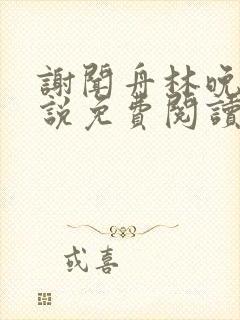 謝聞舟林晚
説免費閱讀
或喜